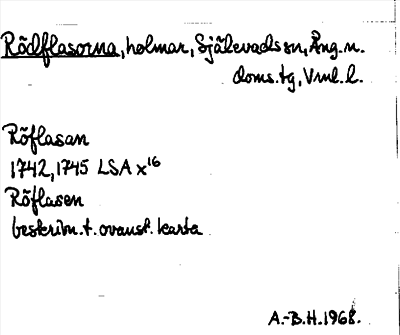 Rödflasorna, holmar, Själevads sn, Ång. n.
doms. tg, Vnl. l.
Röflasan
1742, 1745 LSA X16
Röflasen
beskrivn. t. ovanst. karta
A.-B.H. 1968.